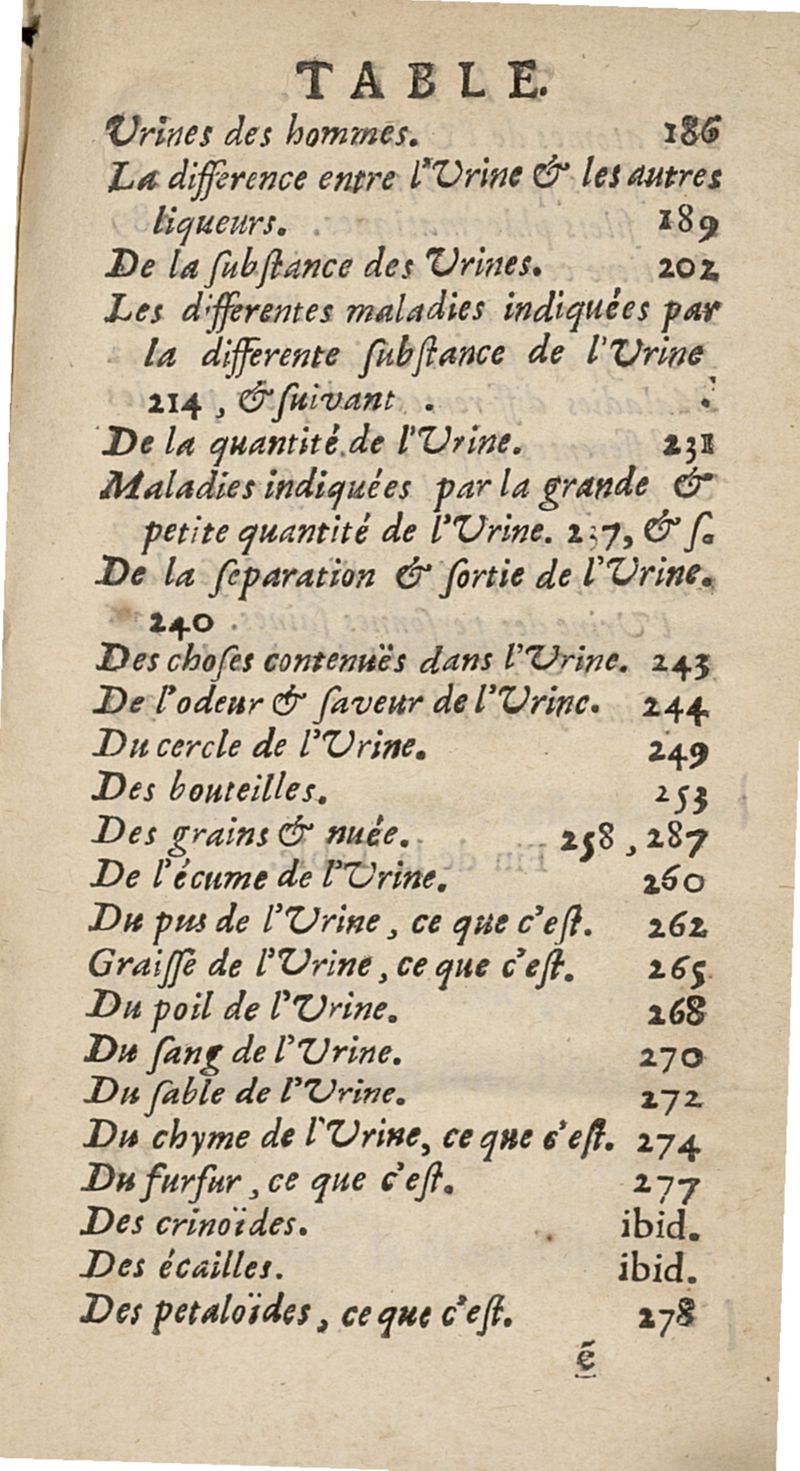 TABLE.
Urines des hommes. 186
La difference entre l'Urine & les autres
liqueurs. 189
De la ſubſtance des Urines. 202
Les differentes maladies indiquées par
la differente ſubſtance de l'Urine
214, & ſuivant.
De la quantité de l'Urine. 231
Maladies indiquées par la grande &
petite quantité de l'Urine. 237, & ſ.
De la ſeparation & ſortie de l'Urine.
240
Des choſes contenuës dans l'Urine. 243
De l'odeur & ſaveur de l'Urine. 244
Du cercle de l'Urine. 249
Des bouteilles. 253
Des grains & nuée. 258, 287
De l'écume de l'Urine. 260
Du pus de l'Urine, ce que c'eſt. 262
Graiſſe de l'Urine, ce que c'eſt. 265
Du poil de l'Urine. 268
Du ſang de l'Urine. 270
Du ſable de l'Urine. 272
Du chyme de l'Urine, ce que c'eſt. 274
Du furfur, ce que c'eſt. 277
Des crinoïdes. ibid.
Des écailles. ibid.
Des petaloïdes, ce que c'eſt. 278
é